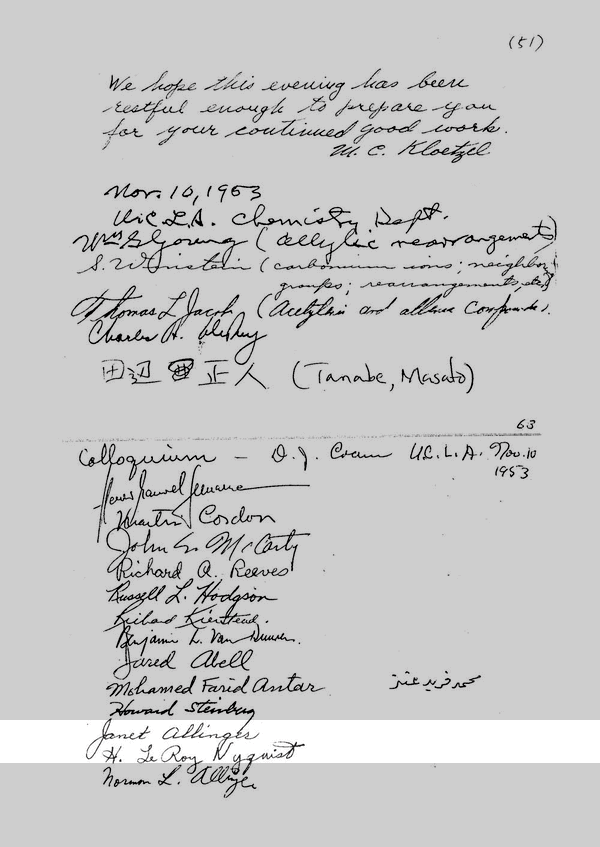 (51)
We hope this evening has been
restful enough to prepare you
for your continued good work.
M. C. Kloetzel
Nov. 10, 1953
U.C.L.A. Chemistry Dept.
Wm G Young (allylic rearrangements)
S. Winstein (carbonium ions; neighboring
groups; rearrangements, etc.)
Thomas L Jacob (Acetylenic and allene Compounds).
Charles A.
田辺 正人 (Tanabe, Masato)
63
Colloquium – D. J. Cram U.C.L.A. Nov. 10
1953
Martin Cordon
John G McCarty
Richard A. Reeves
Russell L. Hodgson
Richard Kierstead.
Benjamin L. Van Duuren.
Jared Abell
Mohamed Farid Antar محمد فريد عنتر
Howard Steinberg
Janet Allinger
H. LeRoy Nyquist
Norman L. Allinger